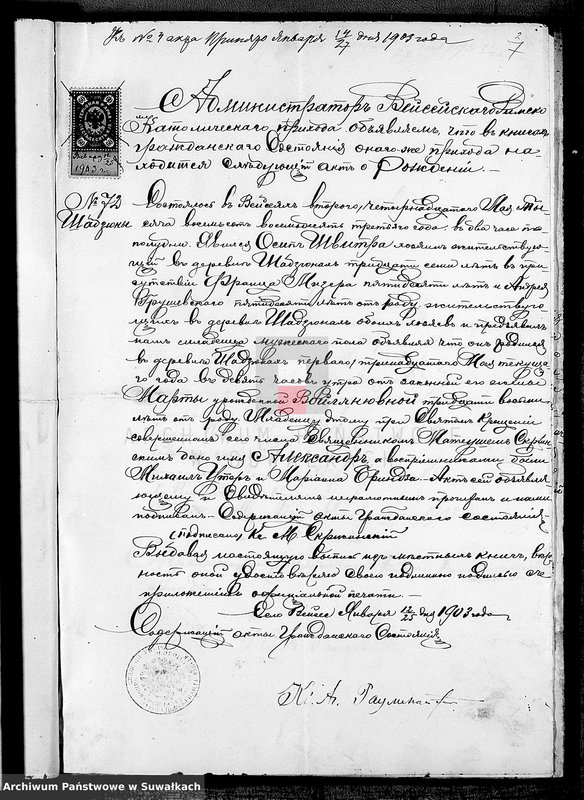 Къ № 4 акта принято Января 14/27 дня 1903 года
7
Администраторъ Вейсейскаго Римско
Католическаго прихода объявляемъ, что въ книгахъ
гражданскаго Состоянія онаго же прихода на-
ходится слѣдующій актъ о Рожденіи. —
1903 г.
№ 72
Шадзюны
Состоялось въ Вейсеяхъ второго/четырнадцатаго Мая, ты-
сяча восемьсотъ восемьдесятъ третьяго года, въ два часа по
полудни. Явился Осипъ Швитра, жительствую-
щій въ деревнѣ Шадзюнахъ тридцати семи лѣтъ въ при-
сутствіи Франца Мизера пятидесяти лѣтъ и Андрея
Грушевскаго пятидесяти лѣтъ отъ роду, жительствую-
щихъ въ деревнѣ Шадзюнахъ обоихъ и предъявилъ
намъ младенца мужескаго пола объявляя что онъ родился
въ деревнѣ Шадзюнахъ перваго/тринадцатаго Мая текуща-
го года въ девять часовъ утра отъ законной его жены
Марты урожденной тридцати восьми
лѣтъ отъ роду. Младенцу этому при Святомъ Крещеніи
совершенномъ сего числа Священникомъ Матеушемъ Скржин-
скимъ дано имя Александръ, а воспріемниками были
Михаилъ и Маріанна — Актъ сей объявля-
ющему и Свидѣтелямъ неграмотнымъ прочитанъ и нами
подписанъ — Содержащій акты Гражданскаго состоянія
(подписано) Кс. М. Скржинскій
Выдавая настоящую Выпись изъ мѣстныхъ книгъ, вѣр-
ность оной удостовѣряю своею подписью съ
приложеніемъ оффиціальной печати. —
Село Вейсее Января 12/25 дня 1903 года
Содержащій акты Гражданскаго Состоянія
Кс. А.
Archiwum Państwowe w Suwałkach